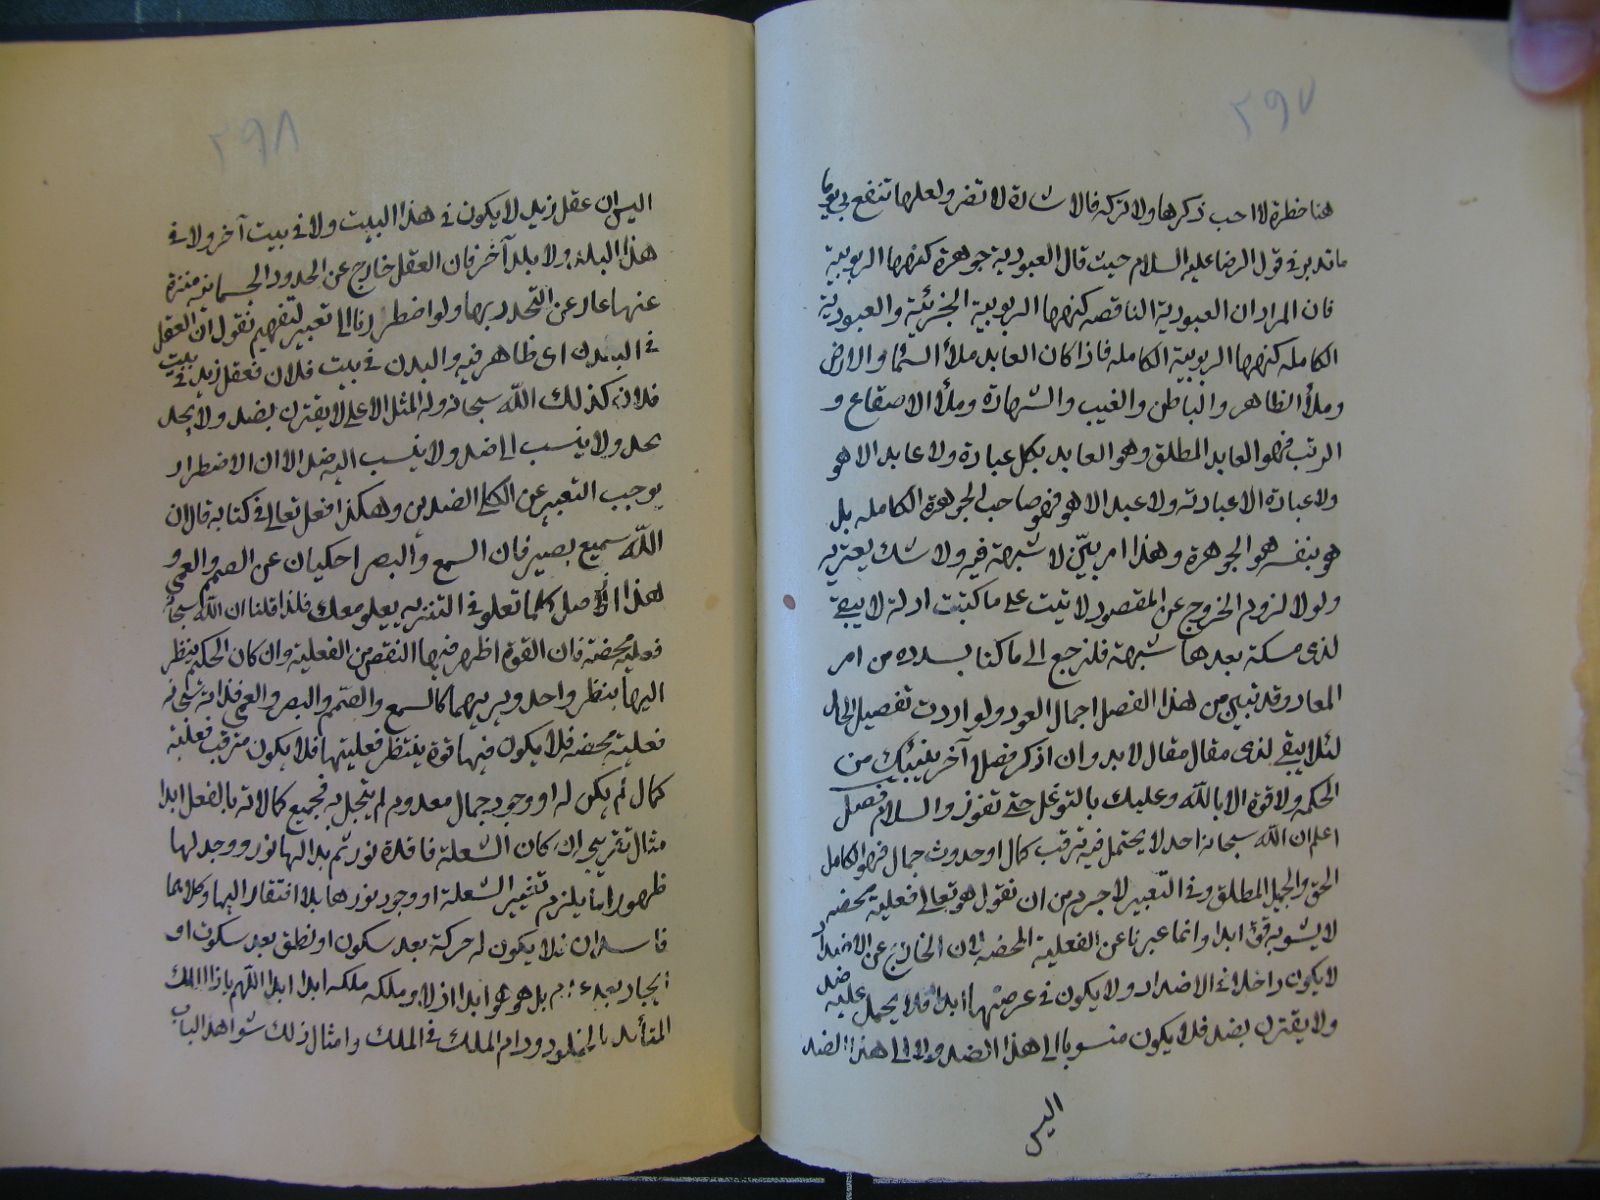 ٢٩٧
هنا خطرة لا احب ذكرها ولا تركه فالاشارة لا تضر ولعلها تنفع بى يوما
ما تدبر فى قول الرضا عليه السلام حيث قال العبودية جوهرة كنهها الربوبية
فان المراد ان العبودية الناقصه كنهها الربوبية الجزئية والعبودية
الكامله كنهها الربوبية الكامله فاذا كان العابد ملأ السماء والارض
وملأ الظاهر والباطن والغيب والشهادة وملأ الاصقاع و
الرتب فهو العابد المطلق وهو العابد بكل عبادة ولا عابد الا هو
ولا عبادة الا عبادته ولا عبد الا هو فهو صاحب الجوهرة الكامله بل
هو بنفسه هو الجوهرة وهذا امر بيّن لا شبهة فيه ولا شك يعتريه
ولولا لزوم الخروج عن المقصود لاتيت على ما كتبت ادلة لا يبقى
لذى مسكة بعدها شبهة فلنرجع الى ما كنا بسدده من امر
المعاد وقد تبين من هذا الفصل اجمال العود ولو اردت تفصيل الحال
لئلا يبقى لذى مقال مقال لابد وان اذكر فصلا آخر ينبئك من
الحكمه ولا قوة الا بالله وعليك بالتوغل حتى تفوز والسلام فصل
اعلم ان الله سبحانه احد لا يحتمل فيه ترقب كمال او حدوث جمال فهو الكامل
الحق والجميل المطلق وفى التعبير لاجرم من ان نقول هو تعالى فعلية محضه
لا يشوبه قوة ابدا وانما عبرنا عن الفعلية المحضه لان الخارج عن الاضداد
لا يكون داخلا فى الاضداد ولا يكون فى عرضها ابدا فلا يحمل عليه ضد
ولا يقترن بضد فلا يكون منسوبا الى هذا الضد ولا الى هذا الضد
اليس
٢٩٨
اليس ان عقل زيد لا يكون فى هذا البيت ولا فى بيت آخر ولا فى
هذا البلد ولا بلد آخر فان العقل خارج عن الحدود الجسمانيه منزه
عنها عار عن التحدد بها ولو اضطررنا الى تعبير لتفهيم نقول ان العقل
فى البدن اى ظاهر فيه والبدن فى بيت فلان فعقل زيد فى بيت
فلان كذلك الله سبحانه وله المثل الاعلى لا يقترن بضد ولا يحد
بحد ولا ينسب الى ضد ولا ينسب اليه ضد الا ان الاضطرار
يوجب التعبير عن الكلى الضدين وهكذا فعل تعالى فى كتابه قال ان
الله سميع بصير فان السمع والبصر احكيان عن الصمم والعمى و
هذا الاصل كلما تعلو فى التنزيه يعلو معك فلذا قلنا ان الله سبحانه
فعلية محضة فان القوة اظهر فيها النقص من الفعلية وان كان الحكيم ينظر
اليها بنظر واحد ويريهما كالسمع والصمم والبصر والعمى فذاته سبحانه
فعلية محضه فلا يكون فيها قوة ينتظر فعليتها فلا يكون مترقب فعلية
كمال لم يكن له او وجود جمال معدوم لم يتجمل به فجميع كمالاته بالفعل ابدا
مثال تقريبى ان كان الشعلة فاقدة نور ثم بدا لها نور ووجد لها
ظهور اما يلزم تغيير الشعلة او وجود نورها بلا افتقار اليها وكلاهما
فاسدان فلا يكون له حركة بعد سكون او نطق بعد سكوت او
ايجاد بعد عدم بل هو هو ابدا اذلا وملكه ملكه ابدا ابدا اللهم ياذا الملك
المتأبد بالخلود ودام الملك فى الملك وامثال ذلك شواهد الباب